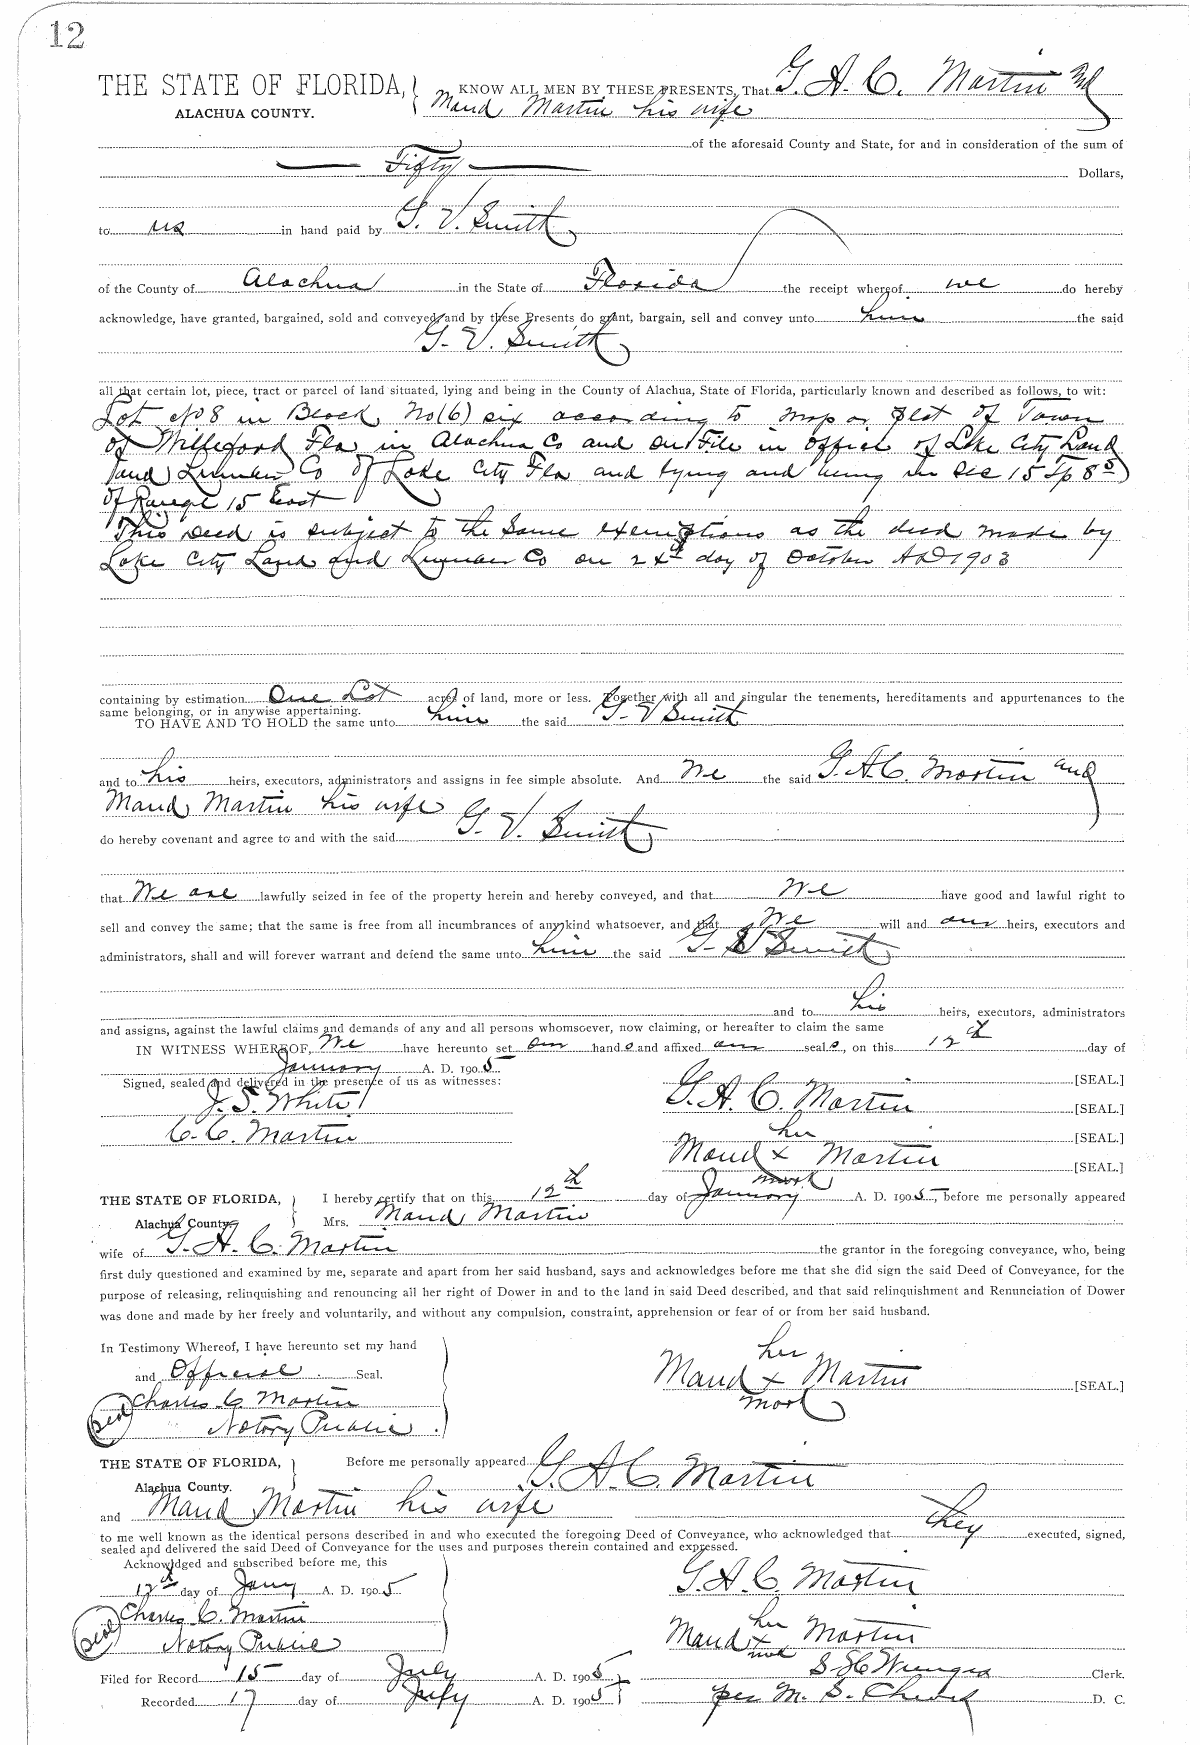 12
THE STATE OF FLORIDA, KNOW ALL MEN BY THESE PRESENTS, That G. A. C. Martin and
ALACHUA COUNTY. Maud Martin his wife
of the aforesaid County and State, for and in consideration of the sum of
Fifty Dollars,
to us in hand paid by G. V. Smith
of the County of Alachua in the State of Florida the receipt whereof we do hereby
acknowledge, have granted, bargained, sold and conveyed and by these Presents do grant, bargain, sell and convey unto him the said
G. V. Smith
all that certain lot, piece, tract or parcel of land situated, lying and being in the County of Alachua, State of Florida, particularly known and described as follows, to wit:
Lot No 8 in Block No (6) six according to map or plat of Town
of Willeford Fla in Alachua Co and on File in office of Lake City Land
and Lumber Co of Lake City Fla and lying and being in Sec 15 Tp 8 S
of Range 15 East
This Deed is subject to the same exemptions as the deed made by
Lake City Land and Lumber Co on 24th day of October AD 1903
containing by estimation One Lot acres of land, more or less. Together with all and singular the tenements, hereditaments and appurtenances to the
same belonging, or in anywise appertaining.
TO HAVE AND TO HOLD the same unto him the said G. V Smith
and to his heirs, executors, administrators and assigns in fee simple absolute. And We the said G. A. C. Martin and
Maud Martin his wife
do hereby covenant and agree to and with the said G. V. Smith
that We are lawfully seized in fee of the property herein and hereby conveyed, and that We have good and lawful right to
sell and convey the same; that the same is free from all incumbrances of any kind whatsoever, and that We will and our heirs, executors and
administrators, shall and will forever warrant and defend the same unto him the said G V Smith
and to his heirs, executors, administrators
and assigns, against the lawful claims and demands of any and all persons whomsoever, now claiming, or hereafter to claim the same
IN WITNESS WHEREOF, We have hereunto set our hands and affixed our seals, on this 12th day of
January A. D. 1905
Signed, sealed and delivered in the presence of us as witnesses: [SEAL.]
J. S. White G. A. C. Martin [SEAL.]
C. C. Martin her [SEAL.]
Maud x Martin [SEAL.]
mark
THE STATE OF FLORIDA, I hereby certify that on this 12th day of January A. D. 1905, before me personally appeared
Alachua County. Mrs. Maud Martin
wife of G. A. C. Martin the grantor in the foregoing conveyance, who, being
first duly questioned and examined by me, separate and apart from her said husband, says and acknowledges before me that she did sign the said Deed of Conveyance, for the
purpose of releasing, relinquishing and renouncing all her right of Dower in and to the land in said Deed described, and that said relinquishment and Renunciation of Dower
was done and made by her freely and voluntarily, and without any compulsion, constraint, apprehension or fear of or from her said husband.
In Testimony Whereof, I have hereunto set my hand her
and Official Seal. Maud x Martin [SEAL.]
Seal Charles C. Martin mark
Notary Public
THE STATE OF FLORIDA, Before me personally appeared G. A. C. Martin
Alachua County.
and Maud Martin his wife
to me well known as the identical persons described in and who executed the foregoing Deed of Conveyance, who acknowledged that they executed, signed,
sealed and delivered the said Deed of Conveyance for the uses and purposes therein contained and expressed.
Acknowledged and subscribed before me, this
12th day of Jany A. D. 1905 G. A. C. Martin
Seal Charles C. Martin her
Notary Public Maud x Martin
mark
Filed for Record 15 day of July A. D. 1905 S H Wienges Clerk.
Recorded 17 day of July A. D. 1905 per M. S. D. C.